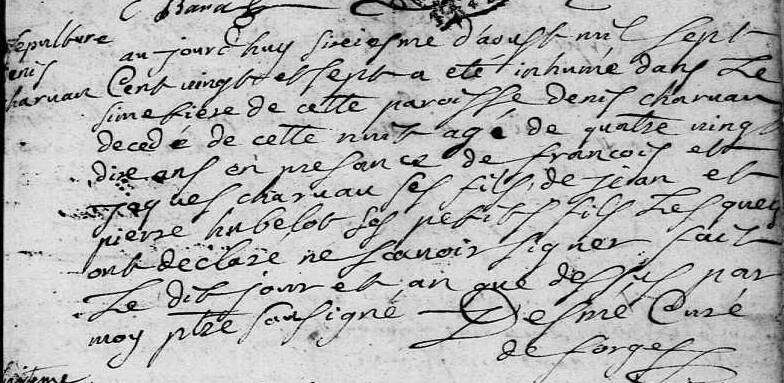 sepulture
denis
charuau
aujourd'huy sixiesme d'aoust mil sept
cent vingt et sept a eté inhumé dans le
simetiere de cette paroisse denis charuau
decedé de cette nuit agé de quatre vingt
dix ens en presance de francois et
jaques charuau ses fils, de jean et
pierre hubelot ses petits fils lesquels
ont declaré ne scauoir signer fait
le dit jour et an que dessus par
moy ptre sousigné Desmé curé
de forges